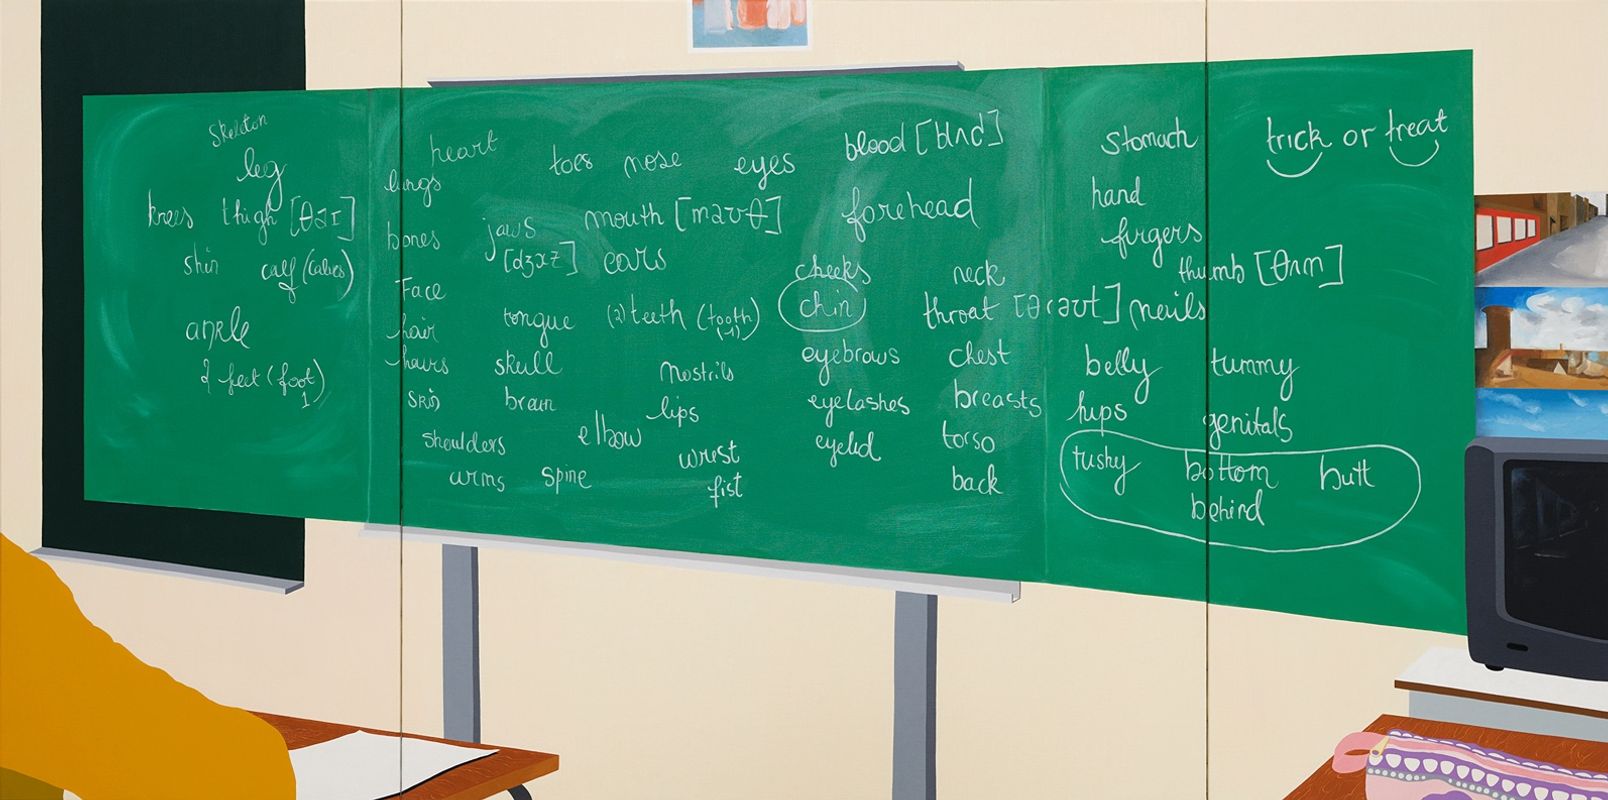 skeleton
leg
knees thigh [θaɪ]
shin calf (calves)
ankle
2 feet (foot)
1
heart
lungs
bones
Face
hair
hairs
skin
shoulders
arms spine
toes nose eyes
jaws
mouth [maʊθ]
ears
tongue (2) teeth (tooth)
(1)
skull
brain
elbow
nostrils
lips
wrist
fist
blood [blʌd]
forehead
cheeks
chin
eyebrows
eyelashes
eyelid
neck
throat
chest
breasts
torso
back
stomach
hand
fingers
thumb [θʌm]
(nails
belly tummy
hips genitals
tushy bottom butt
behind
trick or treat